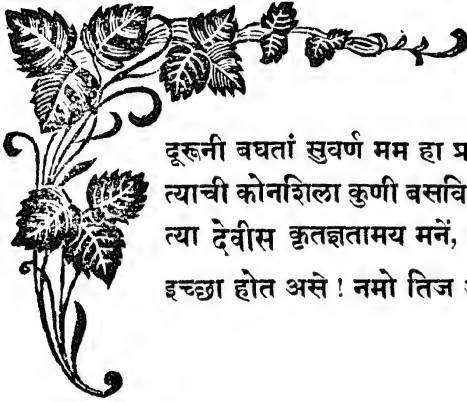 दूरूनी बघतां सुवर्ण मम हा
त्याची कोनशिला कुणी बसवि
त्या देवीस कृतज्ञतामय मनें,
इच्छा होत असे ! नमो तिज